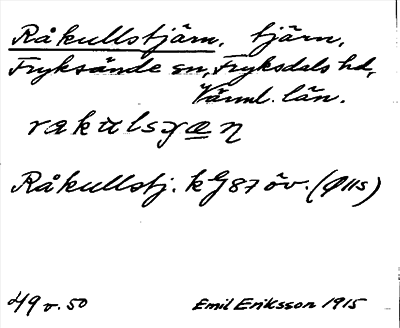 Råkullstjärn. tjärn,
Fryksände sn, Fryksdals hd,
Värml. län.
Råkullstj. kG 87 öv. (Ø 115)
49 v. 50 Emil Eriksson 1915